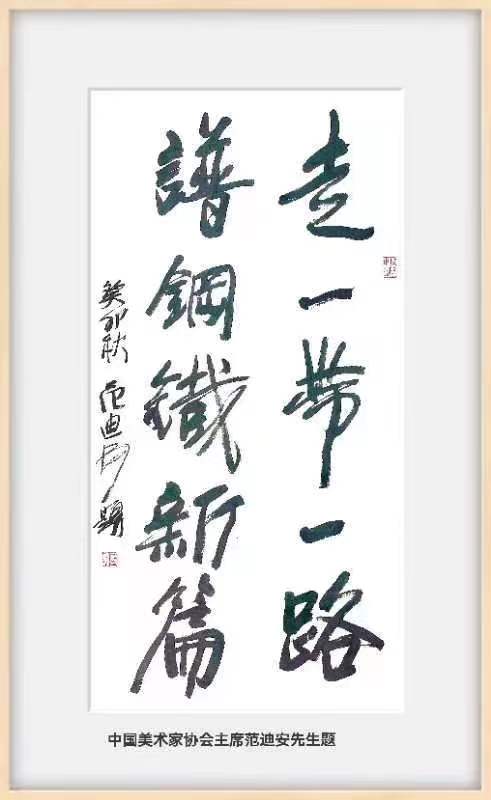 走一带一路
譜鋼鐵新篇
癸卯秋 范迪安題
中国美术家协会主席范迪安先生题